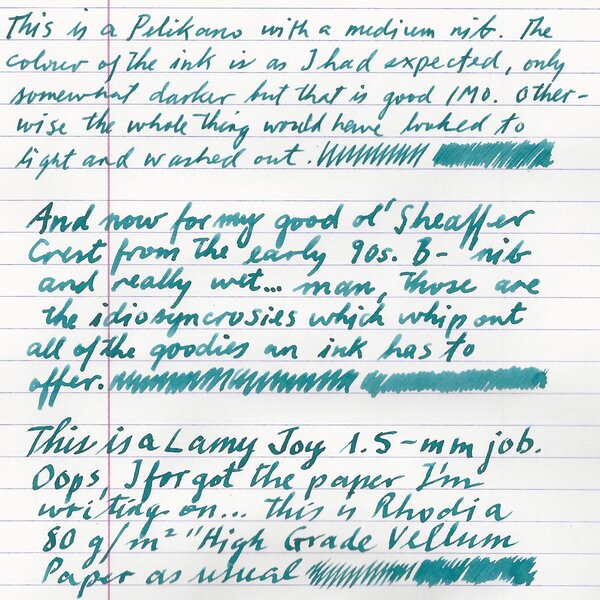 This is a Pelikano with a medium nib. The
colour of the ink is as I had expected, only
somewhat darker but that is good IMO. Other-
wise the whole thing would have looked to
light and washed out.
And now for my good ol' Sheaffer
Crest from the early 90s. B- nib
and really wet... man, those are
the idiosyncrosies which whip out
all of the goodies an ink has to
offer.
This is a Lamy Joy 1.5-mm job.
Oops, I forgot the paper I'm
writing on... this is Rhodia
80 g/m² "High Grade Vellum
Paper as usual